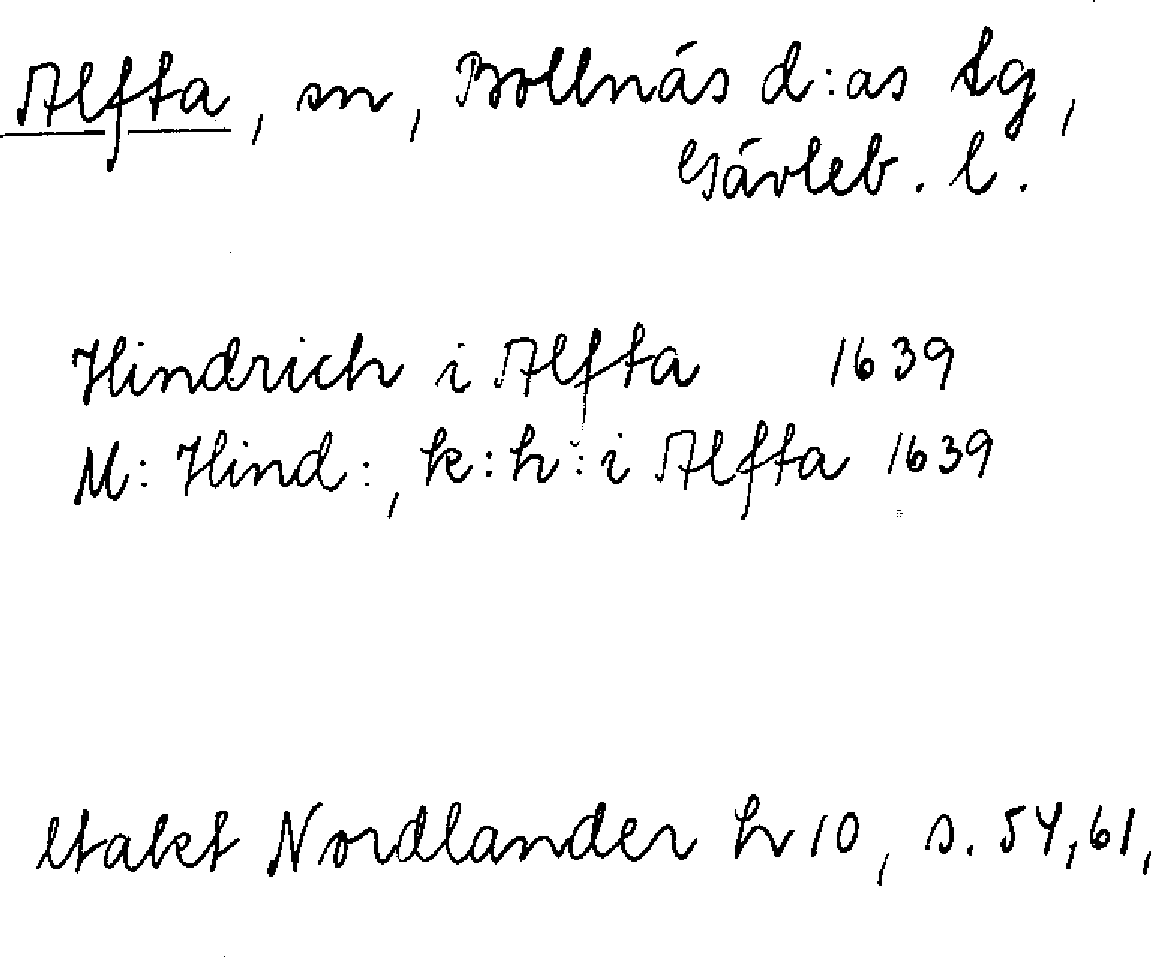 Alfta, sn, Bollnäs d:as tg,
Gävleb. l.
Hindrich i Alfta 1639
M: Hind:, k:h: i Alfta 1639
Nordlander h 10, s. 54, 61,